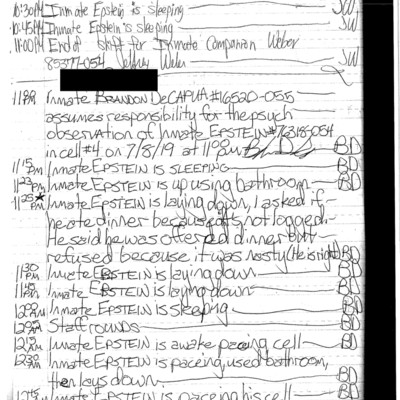 10:30PM Inmate Epstein is sleeping JW
10:45PM Inmate Epstein is sleeping JW
11:00PM End of shift for Inmate Companion Weber
85377-054 Jeffrey Weber JW
11:00 PM Inmate BRANDON DeCAPUA #16520-055
assumes responsibility for the psych
observation of Inmate EPSTEIN #76318-054
in cell #4, on 7/8/19 at 11:00pm BD
11:15 PM Inmate EPSTEIN IS SLEEPING BD
11:23 PM Inmate EPSTEIN is up using bathroom BD
11:25 PM * Inmate EPSTEIN is laying down, I asked if
he ate dinner because its not logged.
He said he was offered dinner but
refused because it was nasty (He is right) BD
11:30 PM Inmate EPSTEIN is laying down BD
11:45 PM Inmate EPSTEIN is laying down BD
12:00 AM Inmate EPSTEIN is sleeping BD
AM Staff rounds BD
12:15 AM Inmate EPSTEIN is awake pacing cell BD
12:30 AM Inmate EPSTEIN is pacing, used bathroom,
then lays down. BD
Inmate EPSTEIN is pacing his cell BD